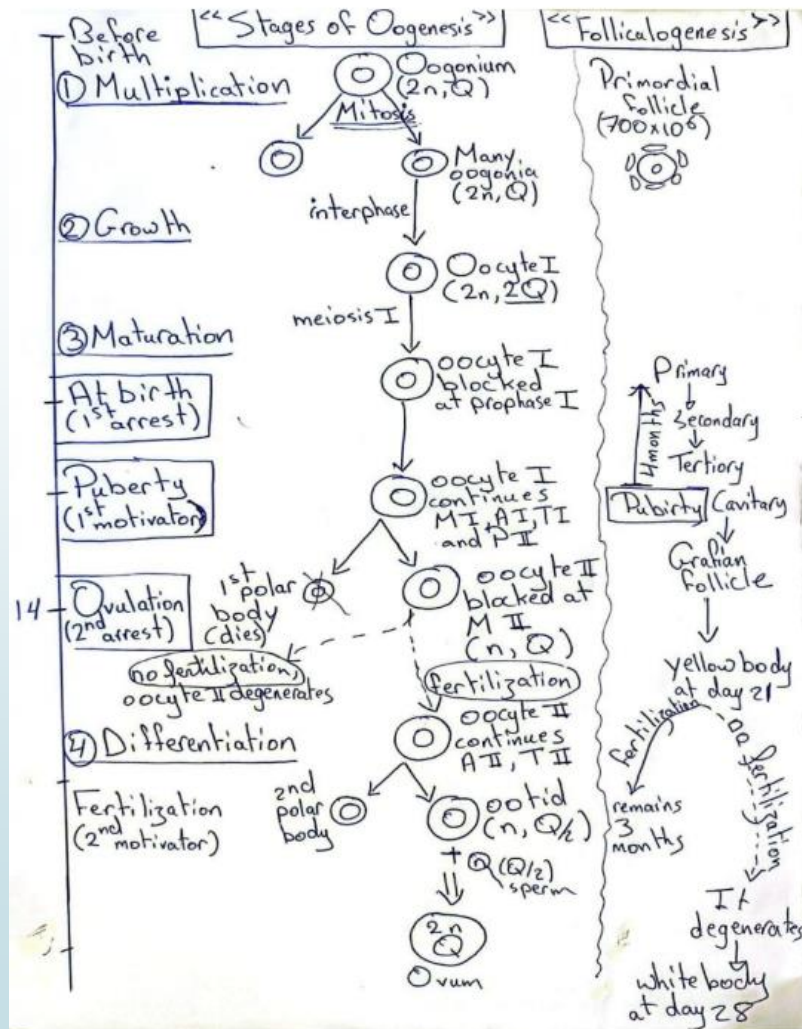 Before
birth
<< Stages of Oogenesis >>
<< Follicalogenesis >>
① Multiplication
Oogonium
(2n, Q)
Mitosis
Many
oogonia
(2n, Q)
interphase
② Growth
Oocyte I
(2n, 2Q)
meiosis I
③ Maturation
At birth
(1st arrest)
oocyte I
blocked
at prophase I
Puberty
(1st motivator)
oocyte I
continues
MI, AI, TI
and PII
14
Ovulation
(2nd arrest)
1st polar
body
(dies)
oocyte II
blocked at
M II
(n, Q)
no fertilization,
oocyte II degenerates
fertilization
④ Differentiation
oocyte II
continues
A II, T II
Fertilization
(2nd motivator)
2nd
polar
body
ootid
(n, Q/2)
+
n (Q/2)
sperm
2n
Q
Ovum
Primordial
follicle
(700x10⁶)
Primary
Secondary
Tertiary
Pubirty
Cavitary
Grafian
follicle
yellow body
at day 21
fertilization
no fertilization
remains
3
months
It
degenerates
white body
at day 28